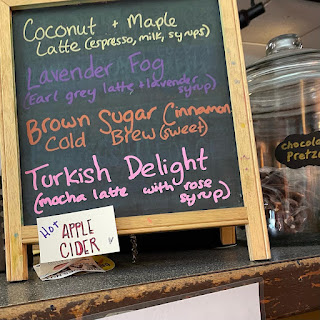 Coconut + Maple
Latte (espresso, milk, syrups)
Lavender Fog
(Earl grey latte + lavender
syrup)
Brown Sugar Cinnamon
Cold Brew (sweet)
Turkish Delight
(mocha latte with rose
syrup)
Hot
APPLE
CIDER
chocola
Pretze